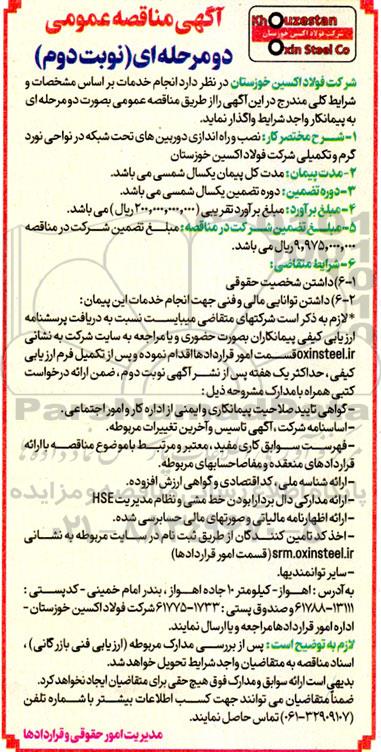 آگهی مناقصه عمومی
دو مرحله ای (نوبت دوم)
Khouzestan
Oxin Steel Co
شرکت فولاد اکسین خوزستان
شرکت فولاد اکسین خوزستان در نظر دارد انجام خدمات بر اساس مشخصات و
شرایط کلی مندرج در این آگهی را از طریق مناقصه عمومی بصورت دو مرحله ای
به پیمانکار واجد شرایط واگذار نماید.
۱- شرح مختصر کار: نصب و راه اندازی دوربین های تحت شبکه در نواحی نورد
گرم و تکمیلی شرکت فولاد اکسین خوزستان
۲- مدت پیمان: مدت کل پیمان یکسال شمسی می باشد.
۳- دوره تضمین: دوره تضمین یکسال شمسی می باشد.
۴- مبلغ برآورد: مبلغ برآورد تقریبی (۲۰۰,۰۰۰,۰۰۰,۰۰۰ ریال) می باشد.
۵- مبلغ تضمین شرکت در مناقصه: مبلغ تضمین شرکت در مناقصه
۹,۹۷۵,۰۰۰,۰۰۰ ریال می باشد.
۶- شرایط متقاضی:
۶-۱) داشتن شخصیت حقوقی
۶-۲) داشتن توانایی مالی و فنی جهت انجام خدمات این پیمان:
* لازم به ذکر است شرکتهای متقاضی میبایست نسبت به دریافت پرسشنامه
ارزیابی کیفی پیمانکاران بصورت حضوری و یا مراجعه به سایت شرکت به نشانی
oxinsteel.ir قسمت امور قراردادها اقدام نموده و پس از تکمیل فرم ارزیابی
کیفی، حداکثر یک هفته پس از نشر آگهی نوبت دوم، ضمن ارائه درخواست
کتبی همراه با مدارک مشروحه ذیل:
- گواهی تایید صلاحیت پیمانکاری و ایمنی از اداره کار و امور اجتماعی.
- اساسنامه شرکت، آگهی تاسیس و آخرین تغییرات مربوطه.
- فهرست سوابق کاری مفید، معتبر و مرتبط با موضوع مناقصه با ارائه
قراردادهای منعقده و مفاصاحسابهای مربوطه.
- ارائه شناسه ملی، کد اقتصادی و گواهی ارزش افزوده.
- ارائه مدارکی دال بر دارا بودن خط مشی و نظام مدیریت HSE
- ارائه اظهارنامه مالیاتی و صورتهای مالی حسابرسی شده.
- اخذ کد تامین کنندگان از طریق ثبت نام در سایت مربوطه به نشانی
srm.oxinsteel.ir (قسمت امور قراردادها)
- سایر توانمندیها.
به آدرس: اهواز- کیلومتر ۱۰ جاده اهواز، بندر امام خمینی - کدپستی:
۶۱۷۸۸-۱۳۱۱۱ و صندوق پستی: ۱۷۳۳-۶۱۷۷۵ شرکت فولاد اکسین خوزستان -
اداره امور قراردادها مراجعه و یا ارسال نمایند.
لازم به توضیح است: پس از بررسی مدارک مربوطه (ارزیابی فنی بازرگانی)،
اسناد مناقصه به متقاضیان واجد شرایط تحویل خواهد شد.
بدیهی است ارائه سوابق و مدارک فوق هیچ حقی برای متقاضیان ایجاد نخواهد کرد.
ضمناً متقاضیان می توانند جهت کسب اطلاعات بیشتر با شماره تلفن
(۰۶۱-۳۲۹۰۹۱۰۷) تماس حاصل نمایند.
مدیریت امور حقوقی و قراردادها